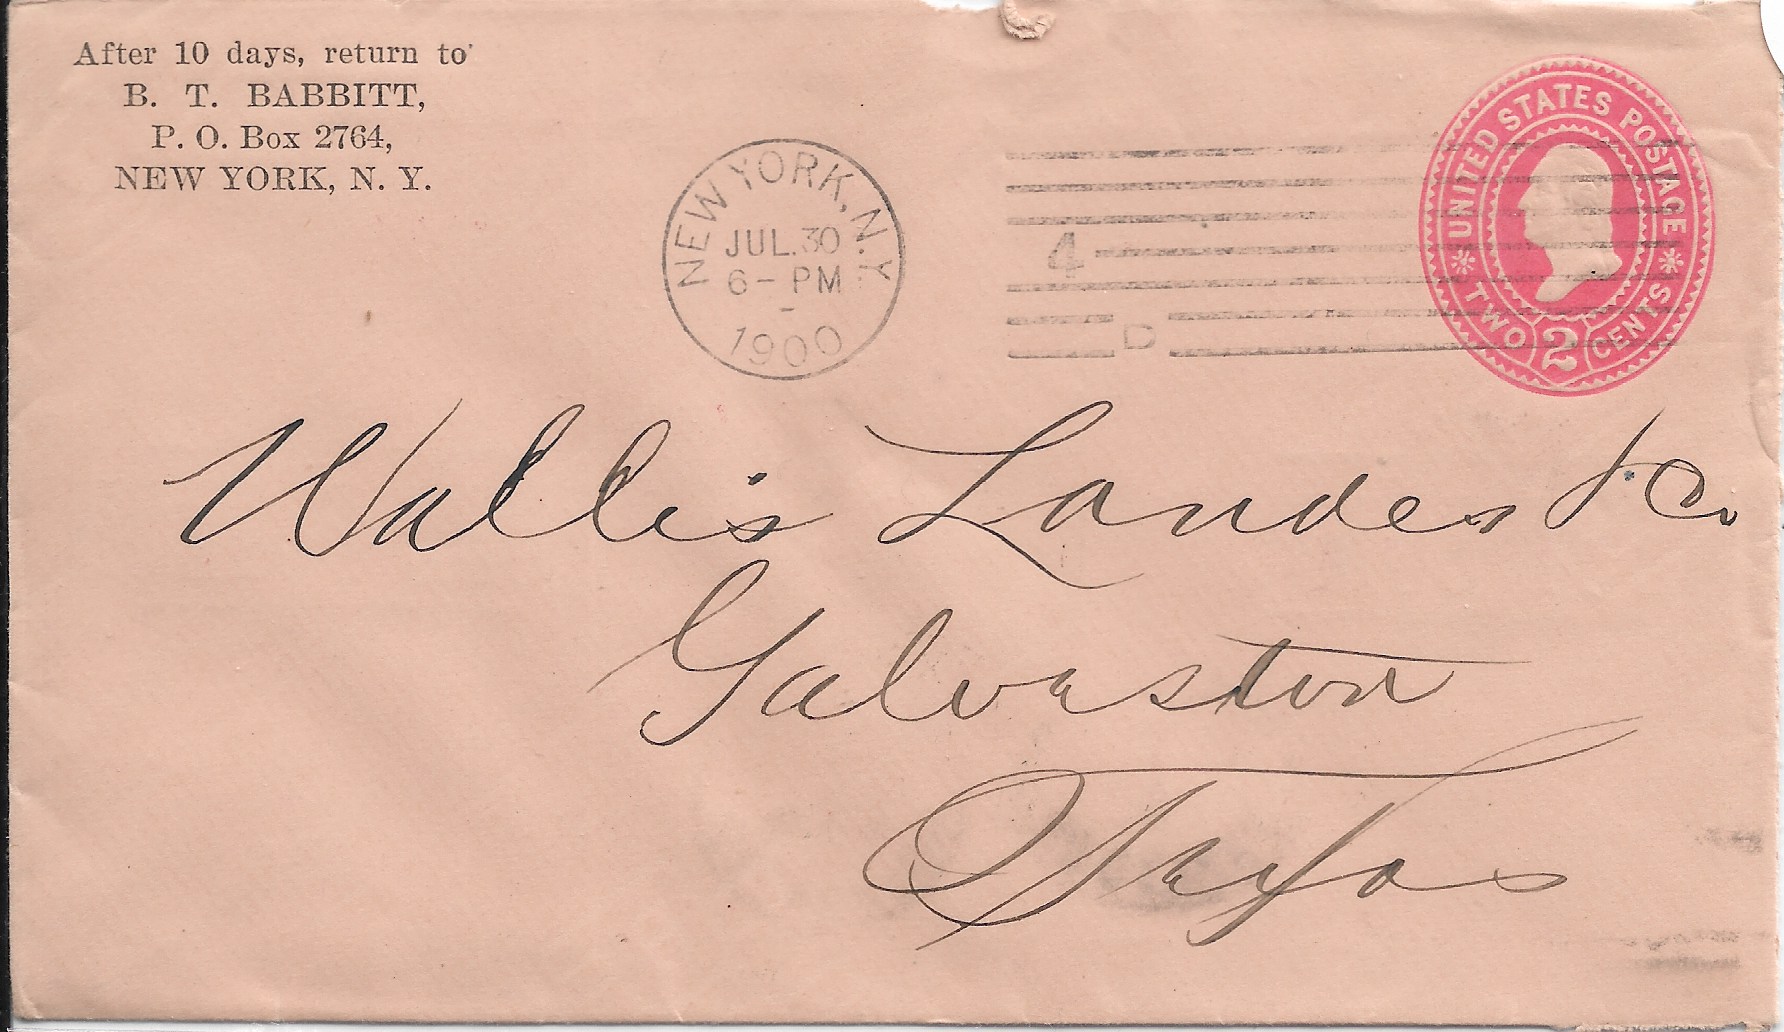 After 10 days, return to
B. T. BABBITT,
P. O. Box 2764,
NEW YORK, N. Y.
NEW YORK, N.Y.
JUL. 30
6 - PM
1900
4
D
UNITED STATES POSTAGE
TWO 2 CENTS
Wallis Landes & Co
Galveston
Texas